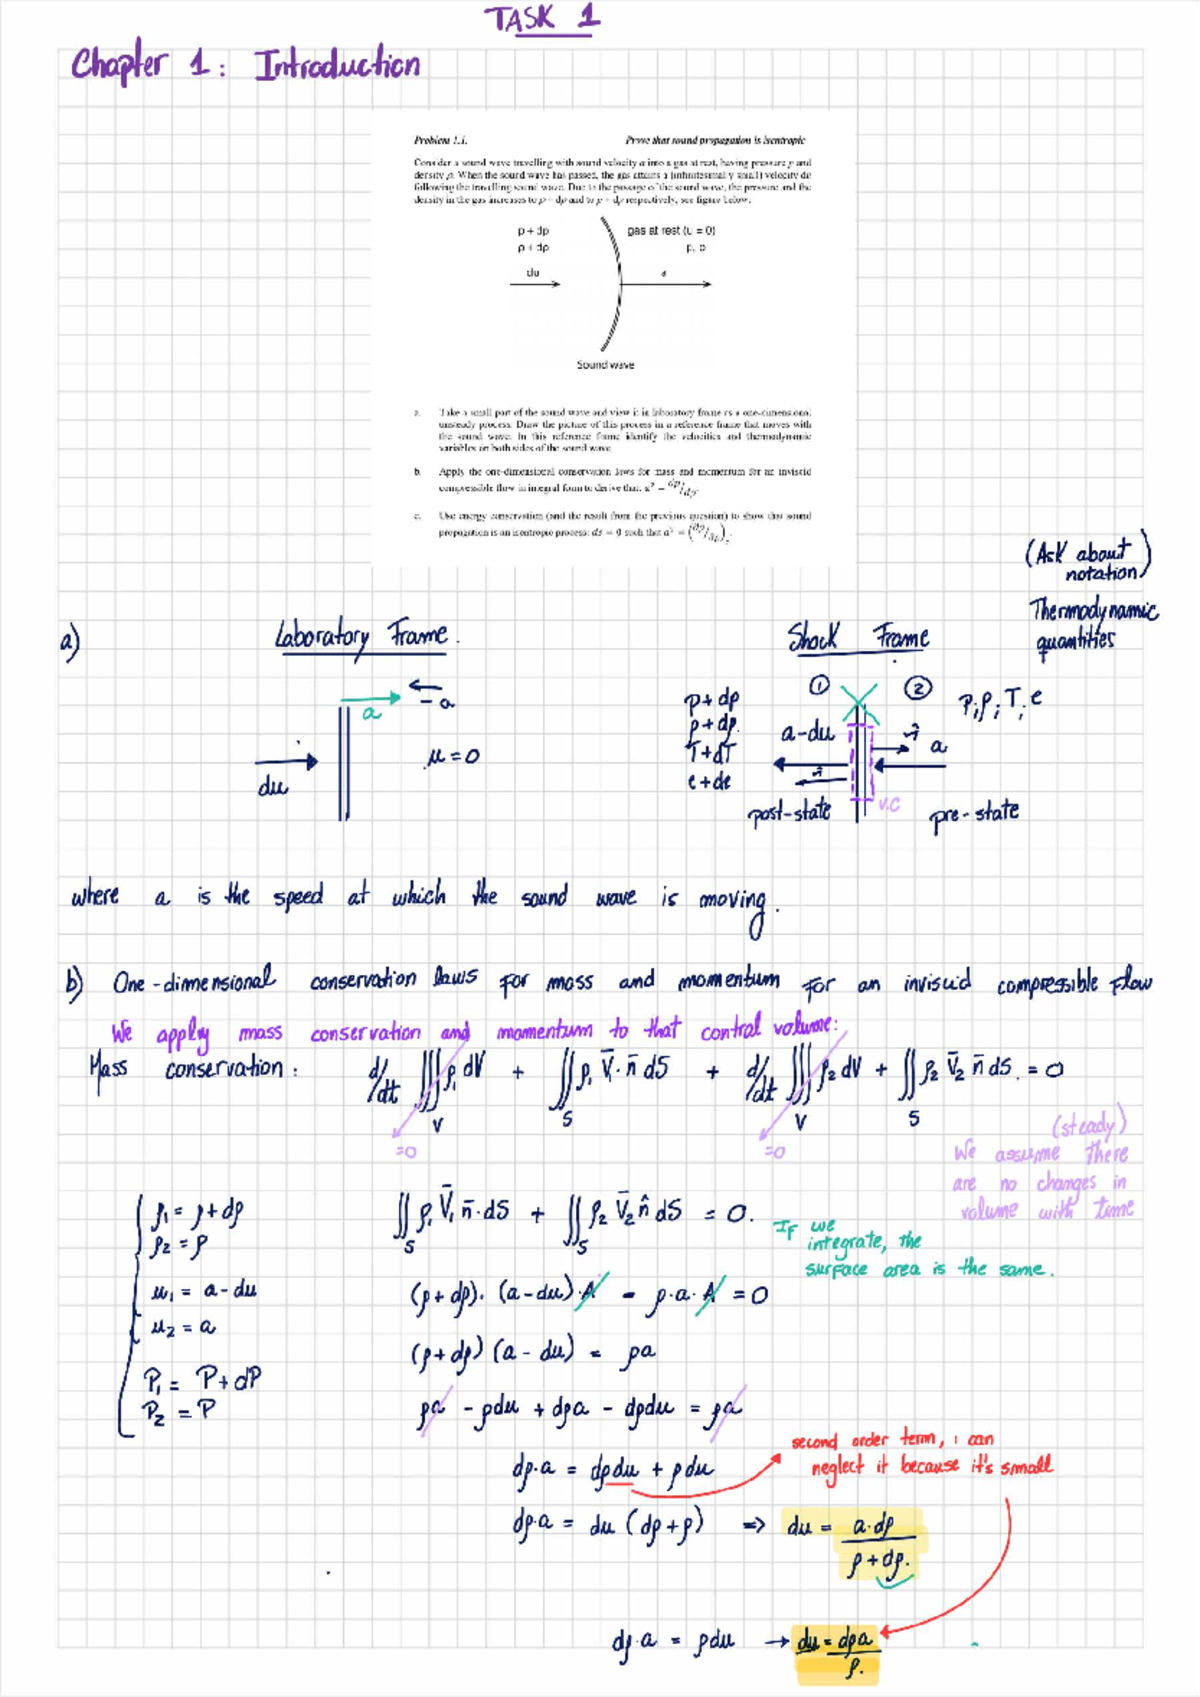 TASK 1
Chapter 1: Introduction
Problem 1.1. Prove that sound propagation is isentropic
Consider a sound wave travelling with sound velocity a into a gas at rest, having pressure p and
density ρ. When the sound wave has passed, the gas attains a (infinitesimal y small) velocity du
following the travelling sound wave. Due to the passage of the sound wave, the pressure and the
density in the gas increases to p + dp and to ρ + dρ respectively, see figure below.
p + dp gas at rest (u = 0)
ρ + dρ p, ρ
du a
Sound wave
a. Take a small part of the sound wave and view it in laboratory frame as a one-dimensional
unsteady process. Draw the picture of this process in a reference frame that moves with
the sound wave. In this reference frame identify the velocities and thermodynamic
variables on both sides of the sound wave
b. Apply the one-dimensional conservation laws for mass and momentum for an inviscid
compressible flow in integral form to derive that: a² = dp/dρ
c. Use energy conservation (and the result from the previous question) to show that sound
propagation is an isentropic process: ds = 0 such that a² = (∂p/∂ρ)s.
(Ask about
notation)
Thermodynamic
quantities
a) Laboratory Frame. Shock Frame
a -a
u = 0
du
p+dp
ρ+dρ
T+dT
e+de
① ②
a-du
P, ρ, T, e
n̄ a
n̄
v.c
post-state pre-state
where a is the speed at which the sound wave is moving.
b) One-dimensional conservation laws for mass and momentum for an inviscid compressible flow
We apply mass conservation and momentum to that control volume:
Mass conservation: d/dt ∭_V ρ₁ dV + ∬_S ρ₁ V̄·n̄ dS + d/dt ∭_V ρ₂ dV + ∬_S ρ₂ V̄₂ n̄ dS = 0
=0 =0
(steady)
We assume there
are no changes in
volume with time
ρ₁ = ρ+dρ
ρ₂ = ρ
u₁ = a-du
u₂ = a
P₁ = P+dP
P₂ = P
∬_S ρ₁ V̄₁ n̄·dS + ∬_S ρ₂ V̄₂ n̂ dS = 0.
If we
integrate, the
surface area is the same.
(ρ+dρ)·(a-du)·A - ρ·a·A = 0
(ρ+dρ)(a-du) = ρa
ρa - ρdu + dρa - dρdu = ρa
dρ·a = dρdu + ρdu
second order term, i can
neglect it because it's small
dρ·a = du (dρ+ρ) => du = a·dρ / ρ+dρ.
dρ·a = ρdu → du = dρa / ρ.